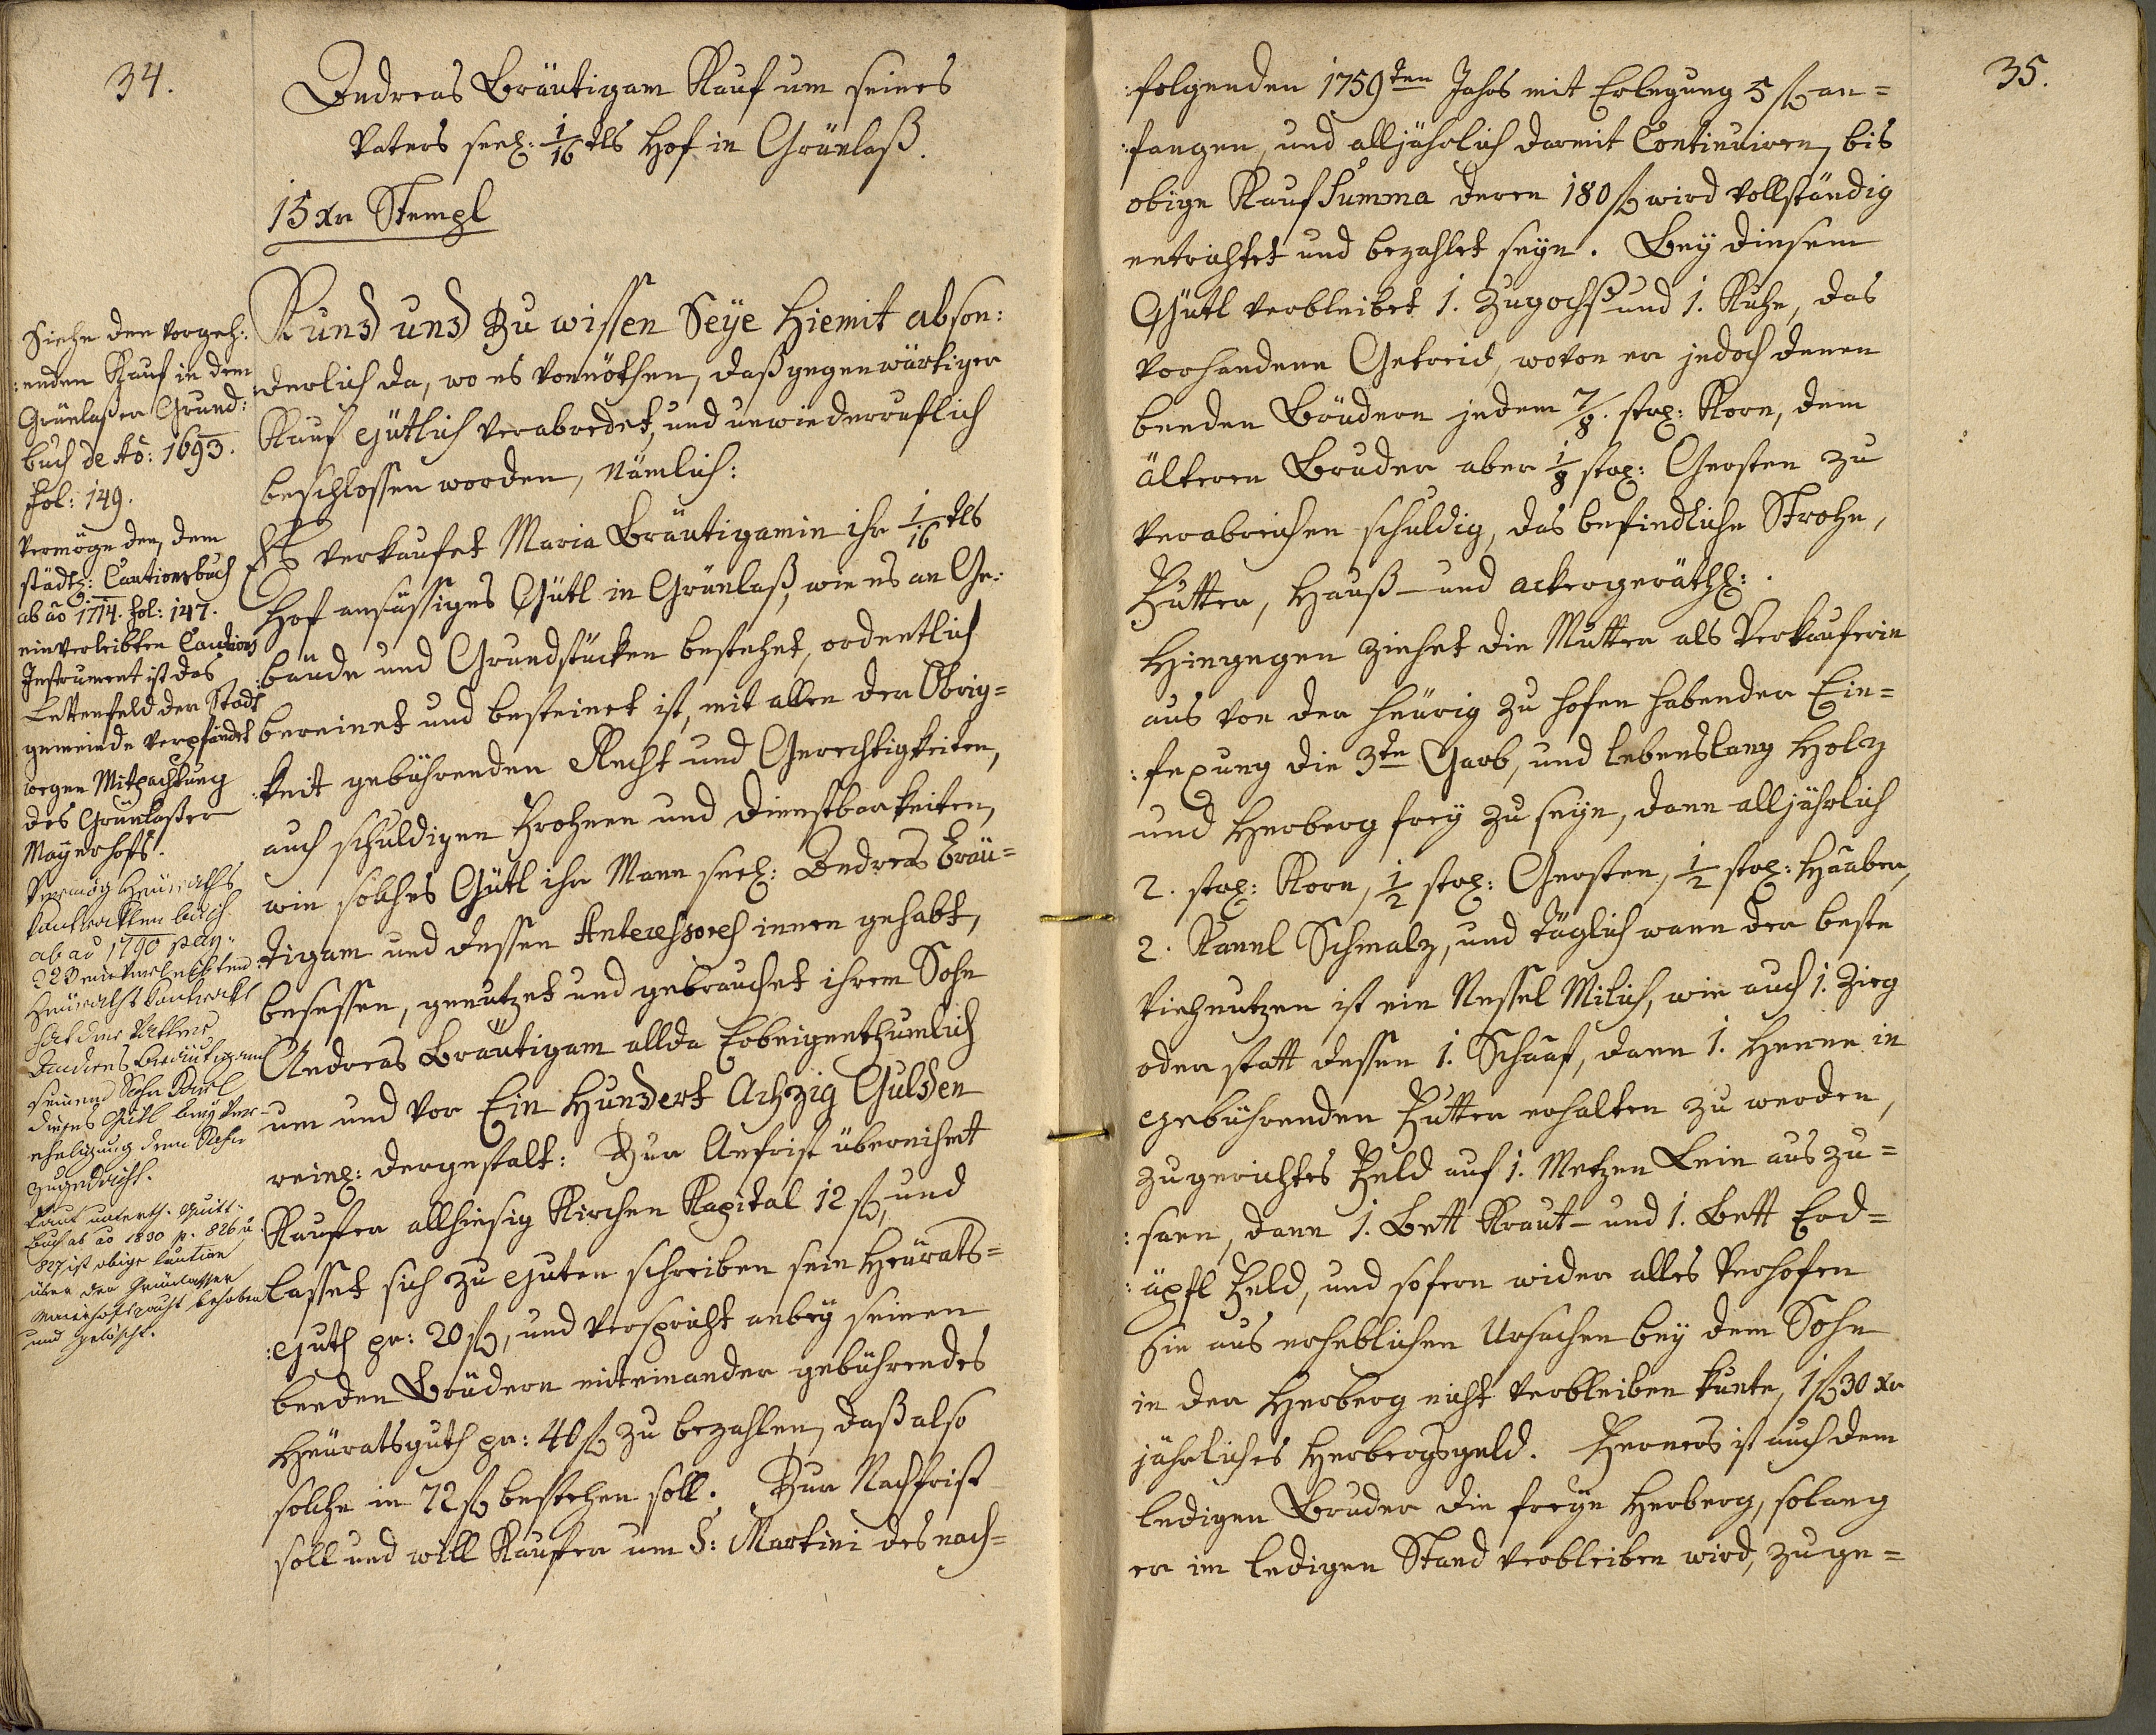 34.
Andreas Bräutigam Kauf um seines
Vaters seel: 1/16 tls Hof in Grünlaß.
15 xr Stempl
Kund und zu wissen Seye hiemit abson:
:derlich da, wo es vonnöthen, daß gegenwärtiger
Kauf gütlich verabredet, und unwiederruflich
beschlossen worden, Nämlich:
Es verkaufet Maria Bräutigamin ihr 1/16 tls
Hof ansässiges Gütl in Grünlaß, wie es an Ge:
:bäude und Grundstücken bestehet, ordentlich
bereinet und besteinet ist, mit allen der Obrig=
:keit gebührenden Recht und Gerechtigkeiten,
auch schuldigen Frohnen und Dienstbarkeiten,
wie solches Gütl ihr Mann seel: Andreas Bräu=
:tigam und dessen Antecessores innen gehabt,
besessen, genützet und gebrauchet ihrem Sohn
Andreas Bräutigam allda Erbeigenthumlich
um und vor Ein Hundert Achzig Gulden
reinl: dergestalt: Zur Anfrist übernihmt
Kaufer allhiesig Kirchen Kapital 12 fl, und
lasset sich zu guten schreiben sein Heürats=
:guth pr: 20 fl, und verspricht anbey seinen
beeden Brüdern miteinander gebührendes
Heüratsguth pr: 40 fl zu bezahlen, daß also
solche in 72 fl bestehen soll. Zur Nachfrist
soll und will Kaufer um S: Martini des nach=
Siehe den vorgeh:
:enden Kauf in dem
Grünlaßer Grund:
buch de Aō: 1693.
fol: 149.
Vermöge den, dem
städtl: Cautionsbuch
ab aō 1714. fol: 147.
einverleibten Cautions
Instrument ist das
Lettenfeld der Stadt
gemeinde verpfändet
wegen Mitpachtung
des Grünlaßer
Mayerhofs.
Vermög Heüraths
Kontrackten buch
ab aō 1790 pag:
einverleibten
Heüraths Kontrackt
hat der Vatter
Andreas Bräutigam
seinem Sohn
dieses Gütl bey Ver-
eheligung dem Sohn
zugedacht.
Laut unterth. Quitt-
buch ab aō 1830 p. 826 u
827 ist obige Caution
über den Grünlasser
Maierhofspacht behoben
und gelöscht.
35.
folgenden 1759ten Jahrs mit Erlegung 5 fl an=
:fangen, und alljährlich darmit Continuiren, bis
obige Kauf Summa deren 180 fl wird vollständig
entrichtet und bezahlet seyn. Bey diesem
Gütl verbleibet 1. Zugochs und 1. Kuhe, das
vorhandene Getreid, wovon er jedoch denen
beeden Brüdern jedem 7/8. strl: Korn, dem
älteren Bruder aber 1/8 strl: Gersten zu
verabreichen schuldig, das befindliche Strohe,
Futter, Hauß- und ackergeräthl:.
Hingegen ziehet die Mutter als Verkauferin
aus von der heürig zu hofen habender Ein=
:fexung die 3te Garb, und lebenslang Holz
und Herberg frey zu seyn, dann alljährlich
2. strl: Korn, 1/2 strl: Gersten, 1/2 strl: Haaber,
2. Kannl Schmalz, und täglich wann der beste
Viehnutzen ist ein Nessel Milich, wie auch 1. Zieg
oder statt dessen 1. Schaaf, dann 1. Henne in
gebührenden Futter erhalten zu werden,
zugerichtes Feld auf 1. Metzen Lein aus zu=
:säen, dann 1. Bett Kraut- und 1. Bett Erd=
:äpfl Feld, und sofern wider alles Verhofen
sie aus erheblichen Ursachen bey dem Sohn
in der Herberg nicht verbleiben kunte, 1 fl 30 xr
jährliches Herbergsgeld. Ferners ist auch dem
ledigen Bruder die freye Herberg, solang
er im ledigen Stand verbleiben wird, zuge=